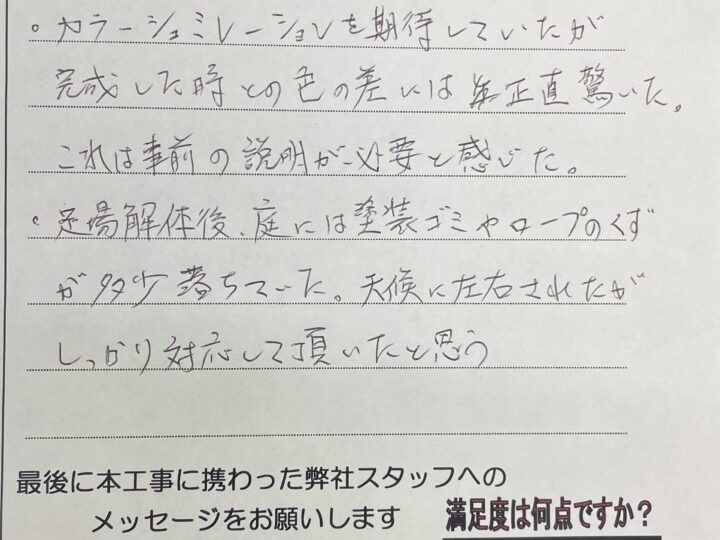 。カラーシュミレーションを期待していたが
完成した時との色の差には正直驚いた。
これは事前の説明が必要と感じた。
。足場解体後、庭には塗装ゴミやロープのくず
が多少落ちていた。天候に左右されたが
しっかり対応して頂いたと思う
最後に本工事に携わった弊社スタッフへの
メッセージをお願いします
満足度は何点ですか？